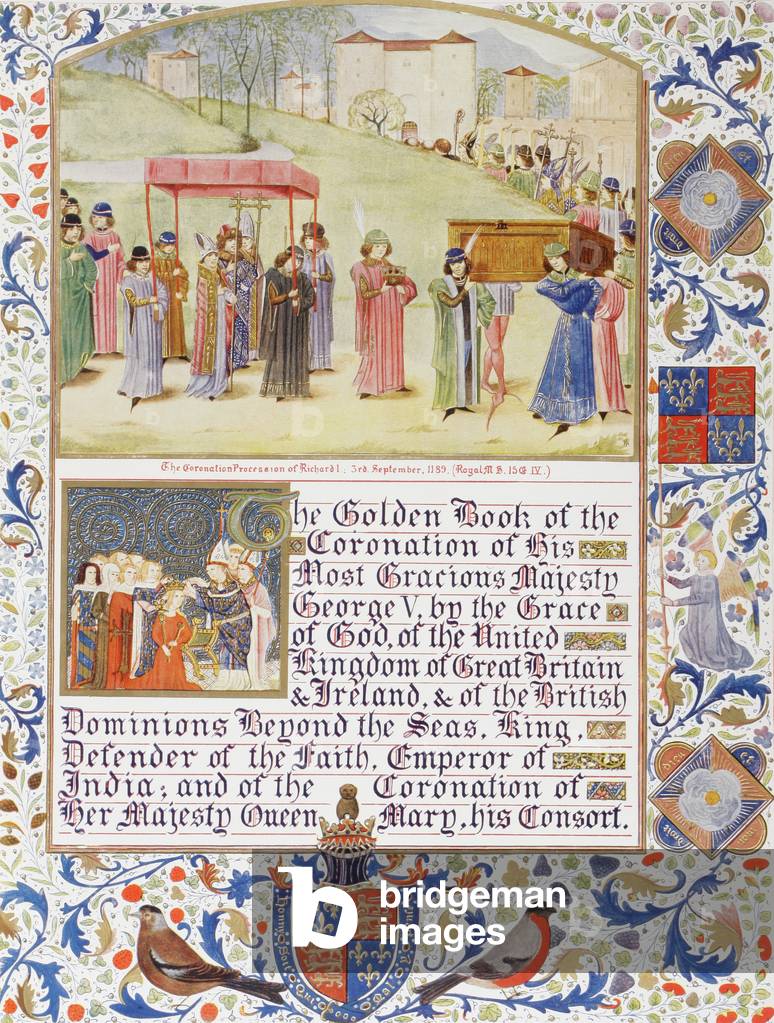 The Coronation Procession of Richard I. 3rd. September, 1189. (Royal M S. 15 G IV.)
The Golden Book of the
Coronation of His
Most Gracious Majesty
George V, by the Grace
of God, of the United
Kingdom of Great Britain
& Ireland, & of the British
Dominions Beyond the Seas, King,
Defender of the Faith, Emperor of
India; and of the Coronation of
Her Majesty Queen Mary, his Consort.
dieu et
dieu et
b bridgeman
images